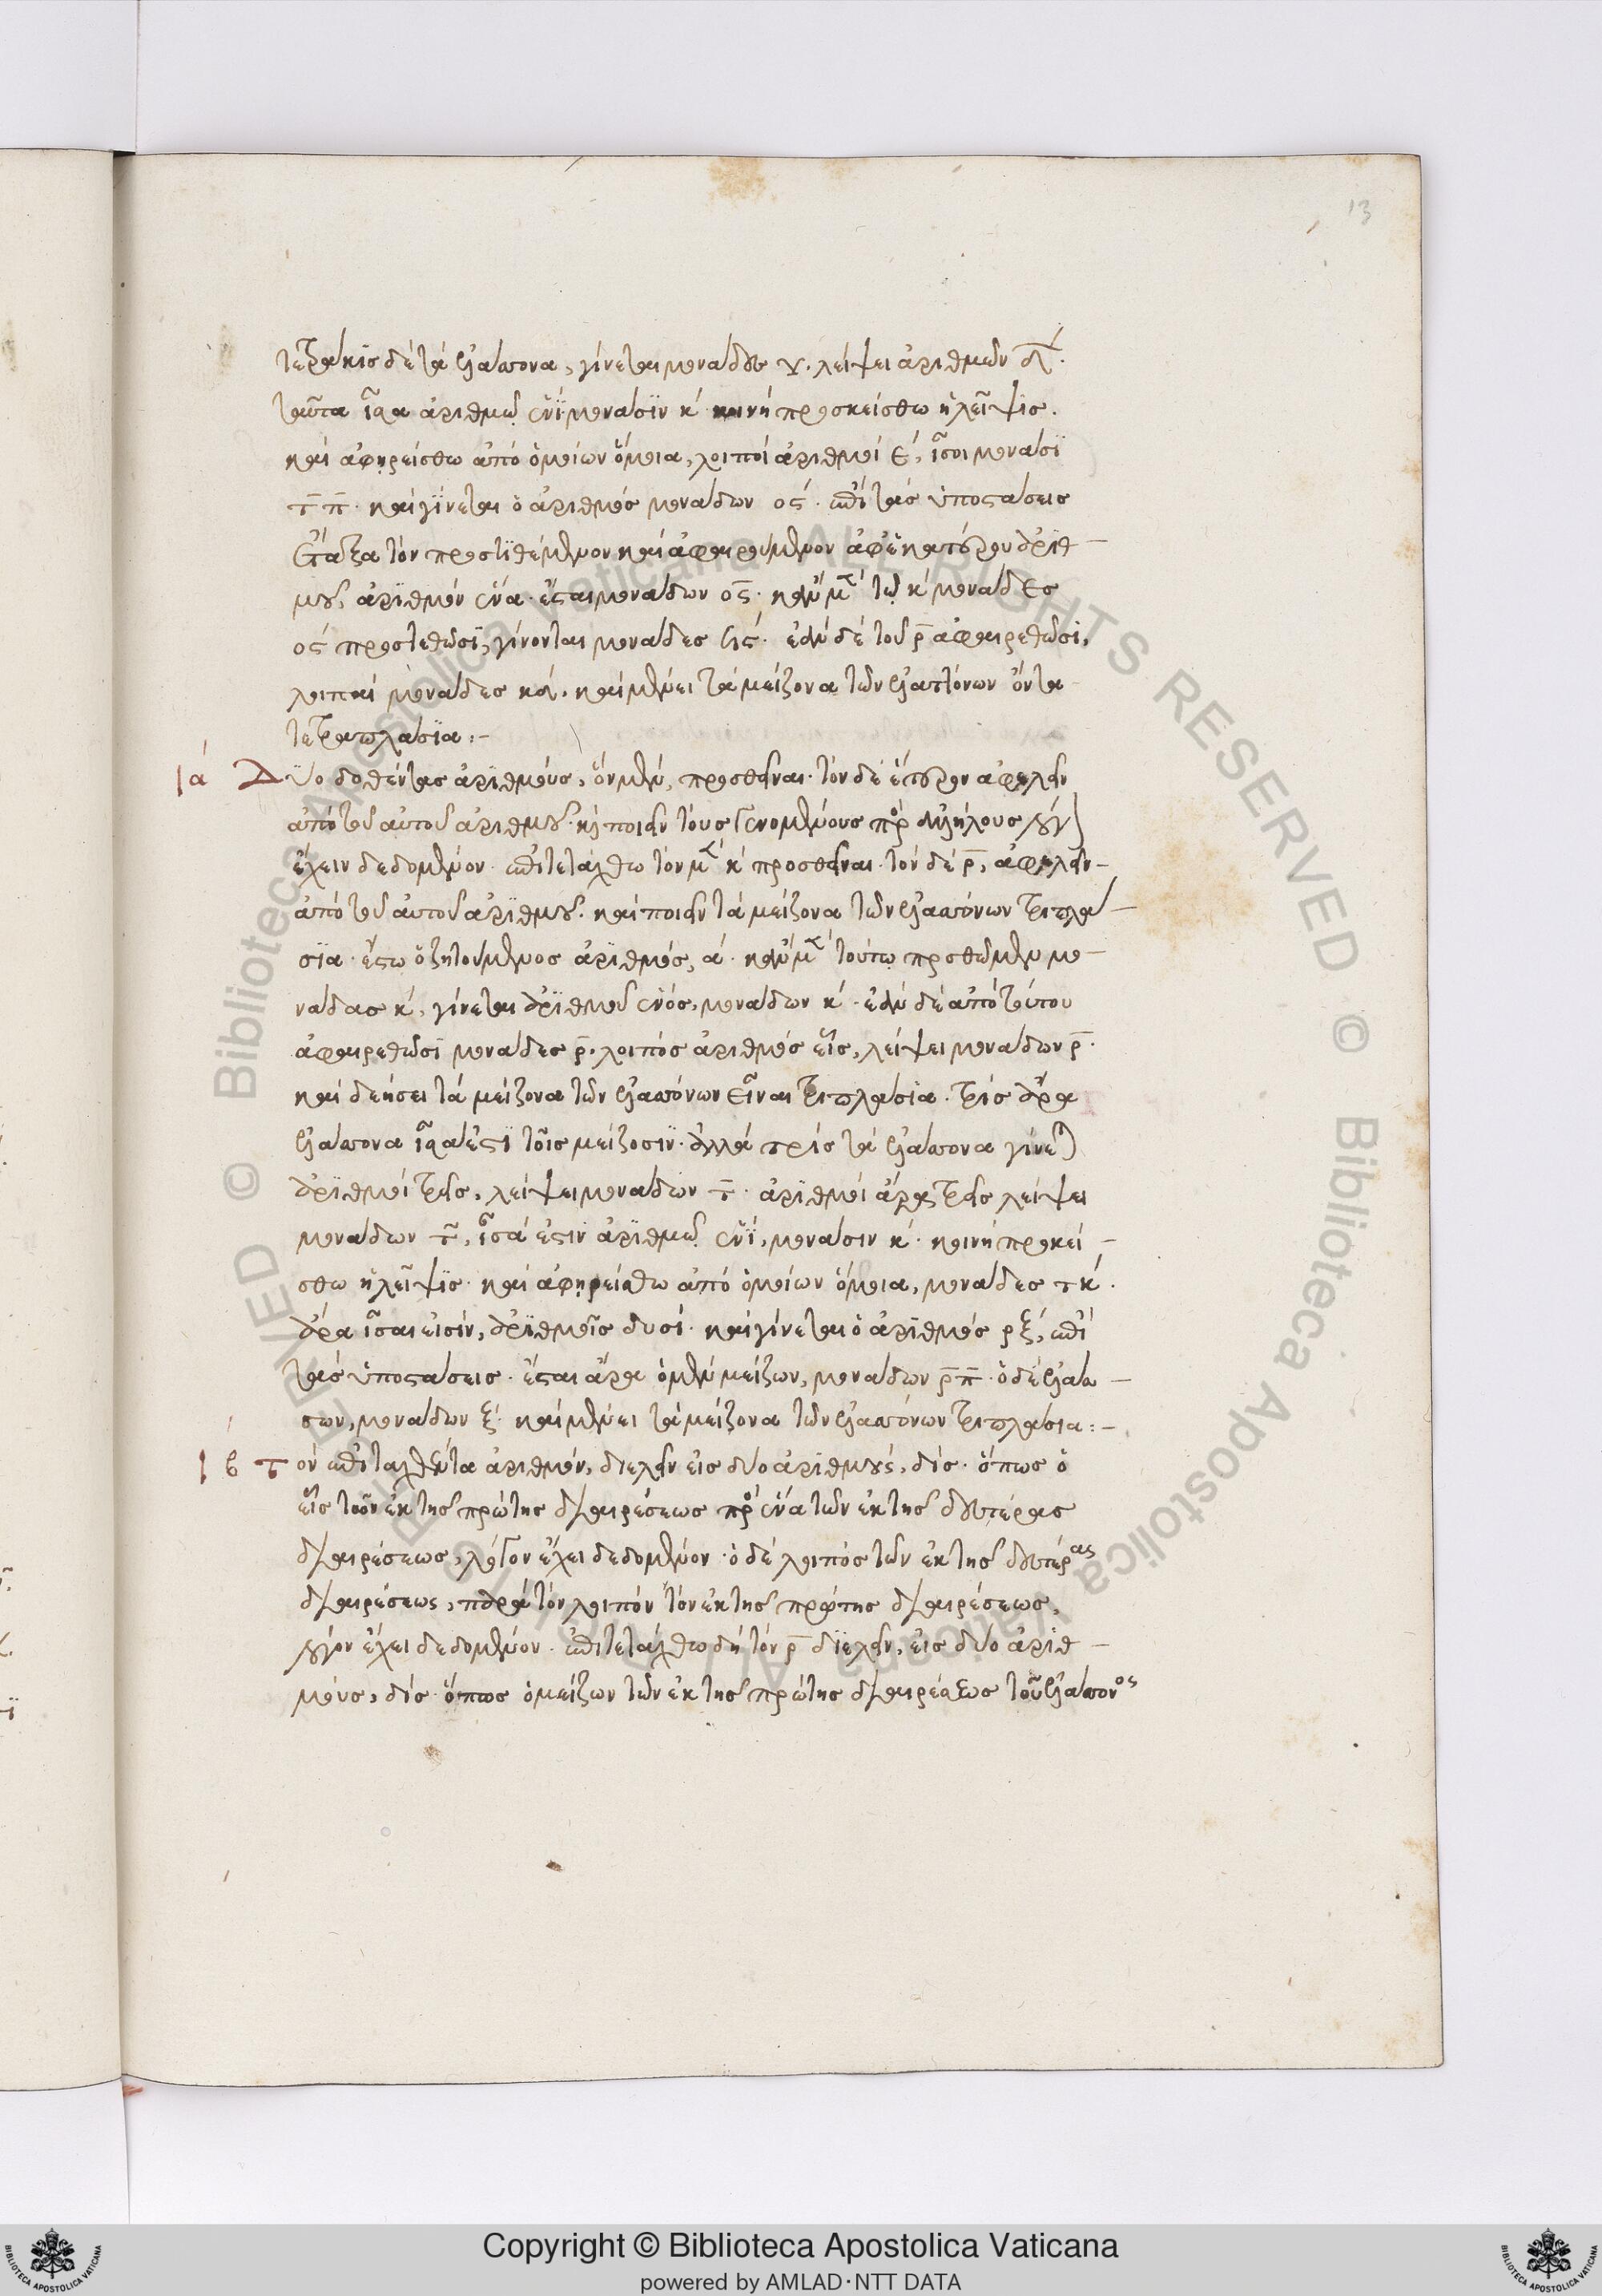 13
τετράκις δὲ τὰ ἐλάττονα, γίνεται μονάδων υ. λείψει ἀριθμῶν δ.
ταῦτα ἴσα ἀριθμῷ ἑνὶ μονάσιν κ κοινὴ προσκείσθω ἡ λεῖψις.
καὶ ἀφῃρείσθω ἀπὸ ὁμοίων ὅμοια, λοιποὶ ἀριθμοὶ ε, ἴσοι μονάσι
τπ. καὶ γίνεται ὁ ἀριθμὸς μονάδων ος. ἐπὶ τὰς ὑποστάσεις
ἔταξα τὸν προστιθέμενον καὶ ἀφαιρούμενον ἀφ' ἑκατέρου ἀριθ-
μοῦ, ἀριθμὸν ἕνα. ἔσται μονάδων ος. κἂν μὲν τῷ κ μονάδες
ος προστεθῶσι, γίνονται μονάδες ϟς. ἐὰν δὲ τοῦ ρ ἀφαιρεθῶσι,
λοιπαὶ μονάδες κδ. καὶ μένει τὰ μείζονα τῶν ἐλαττόνων ὄντα
τετραπλάσια:-
ια Δύο δοθέντας ἀριθμοὺς, ὃν μὲν, προσθεῖναι. τὸν δὲ ἕτερον ἀφελεῖν
ἀπὸ τοῦ αὐτοῦ ἀριθμοῦ. κ ποιεῖν τοὺς γενομένους πρὸς ἀλλήλους λόγον
ἔχειν δεδομένον. ἐπιτετάχθω τὸν μὲν κ προσθεῖναι. τὸν δὲ ρ, ἀφελεῖν-
ἀπὸ τοῦ αὐτοῦ ἀριθμοῦ. καὶ ποιεῖν τὰ μείζονα τῶν ἐλαττόνων τριπλα-
σια. ἔστω ὁ ζητούμενος ἀριθμὸς, α. κἂν μὲν τούτῳ προσθῶμεν μο-
νάδας κ, γίνεται ἀριθμοῦ ἑνὸς, μονάδων κ. ἐὰν δὲ ἀπὸ τούτου
ἀφαιρεθῶσι μονάδες ρ. λοιπὸς ἀριθμὸς εἷς, λείψει μονάδων ρ.
καὶ δεήσει τὰ μείζονα τῶν ἐλαττόνων εἶναι τριπλάσια. τρὶς ἄρα
ἐλάττονα ἴσα ἐστὶ τοῖς μείζοσιν. ἀλλὰ τρὶς τὰ ἐλάττονα γίνεται
ἀριθμοὶ τρεῖς, λείψει μονάδων τ. ἀριθμοὶ ἄρα τρεῖς λείψει
μονάδων τ, ἴσά ἐστιν ἀριθμῷ ἑνὶ, μονάσιν κ. κοινὴ προκεί-
σθω ἡ λεῖψις. καὶ ἀφῃρείσθω ἀπὸ ὁμοίων ὅμοια, μονάδες τκ.
ἄρα ἴσαι εἰσὶν, ἀριθμοῖς δυσί. καὶ γίνεται ὁ ἀριθμὸς ρξ, ἐπὶ
τὰς ὑποστάσεις. ἔσται ἄρα ὁ μὲν μείζων, μονάδων ρπ. ὁ δὲ ἐλάσ-
σων, μονάδων ξ. καὶ μένει τὰ μείζονα τῶν ἐλαττόνων τριπλάσια:-
ιβ Τὸν ἐπιταχθέντα ἀριθμὸν, διελεῖν εἰς δύο ἀριθμοὺς, δίς. ὅπως ὁ
εἷς τῶν ἐκ τῆς πρώτης διαιρέσεως πρὸς ἕνα τῶν ἐκ τῆς δευτέρας
διαιρέσεως, λόγον ἔχει δεδομένον. ὁ δὲ λοιπὸς τῶν ἐκ τῆς δευτέρας
διαιρέσεως, πρὸς τὸν λοιπὸν τὸν ἐκ τῆς πρώτης διαιρέσεως,
λόγον ἔχει δεδομένον. ἐπιτετάχθω δὴ τὸν ρ διελεῖν, εἰς δύο ἀριθ-
μοὺς, δίς. ὅπως ὁ μείζων τῶν ἐκ τῆς πρώτης διαιρέσεως τοῦ ἐλάττονος
Copyright © Biblioteca Apostolica Vaticana
powered by AMLAD·NTT DATA